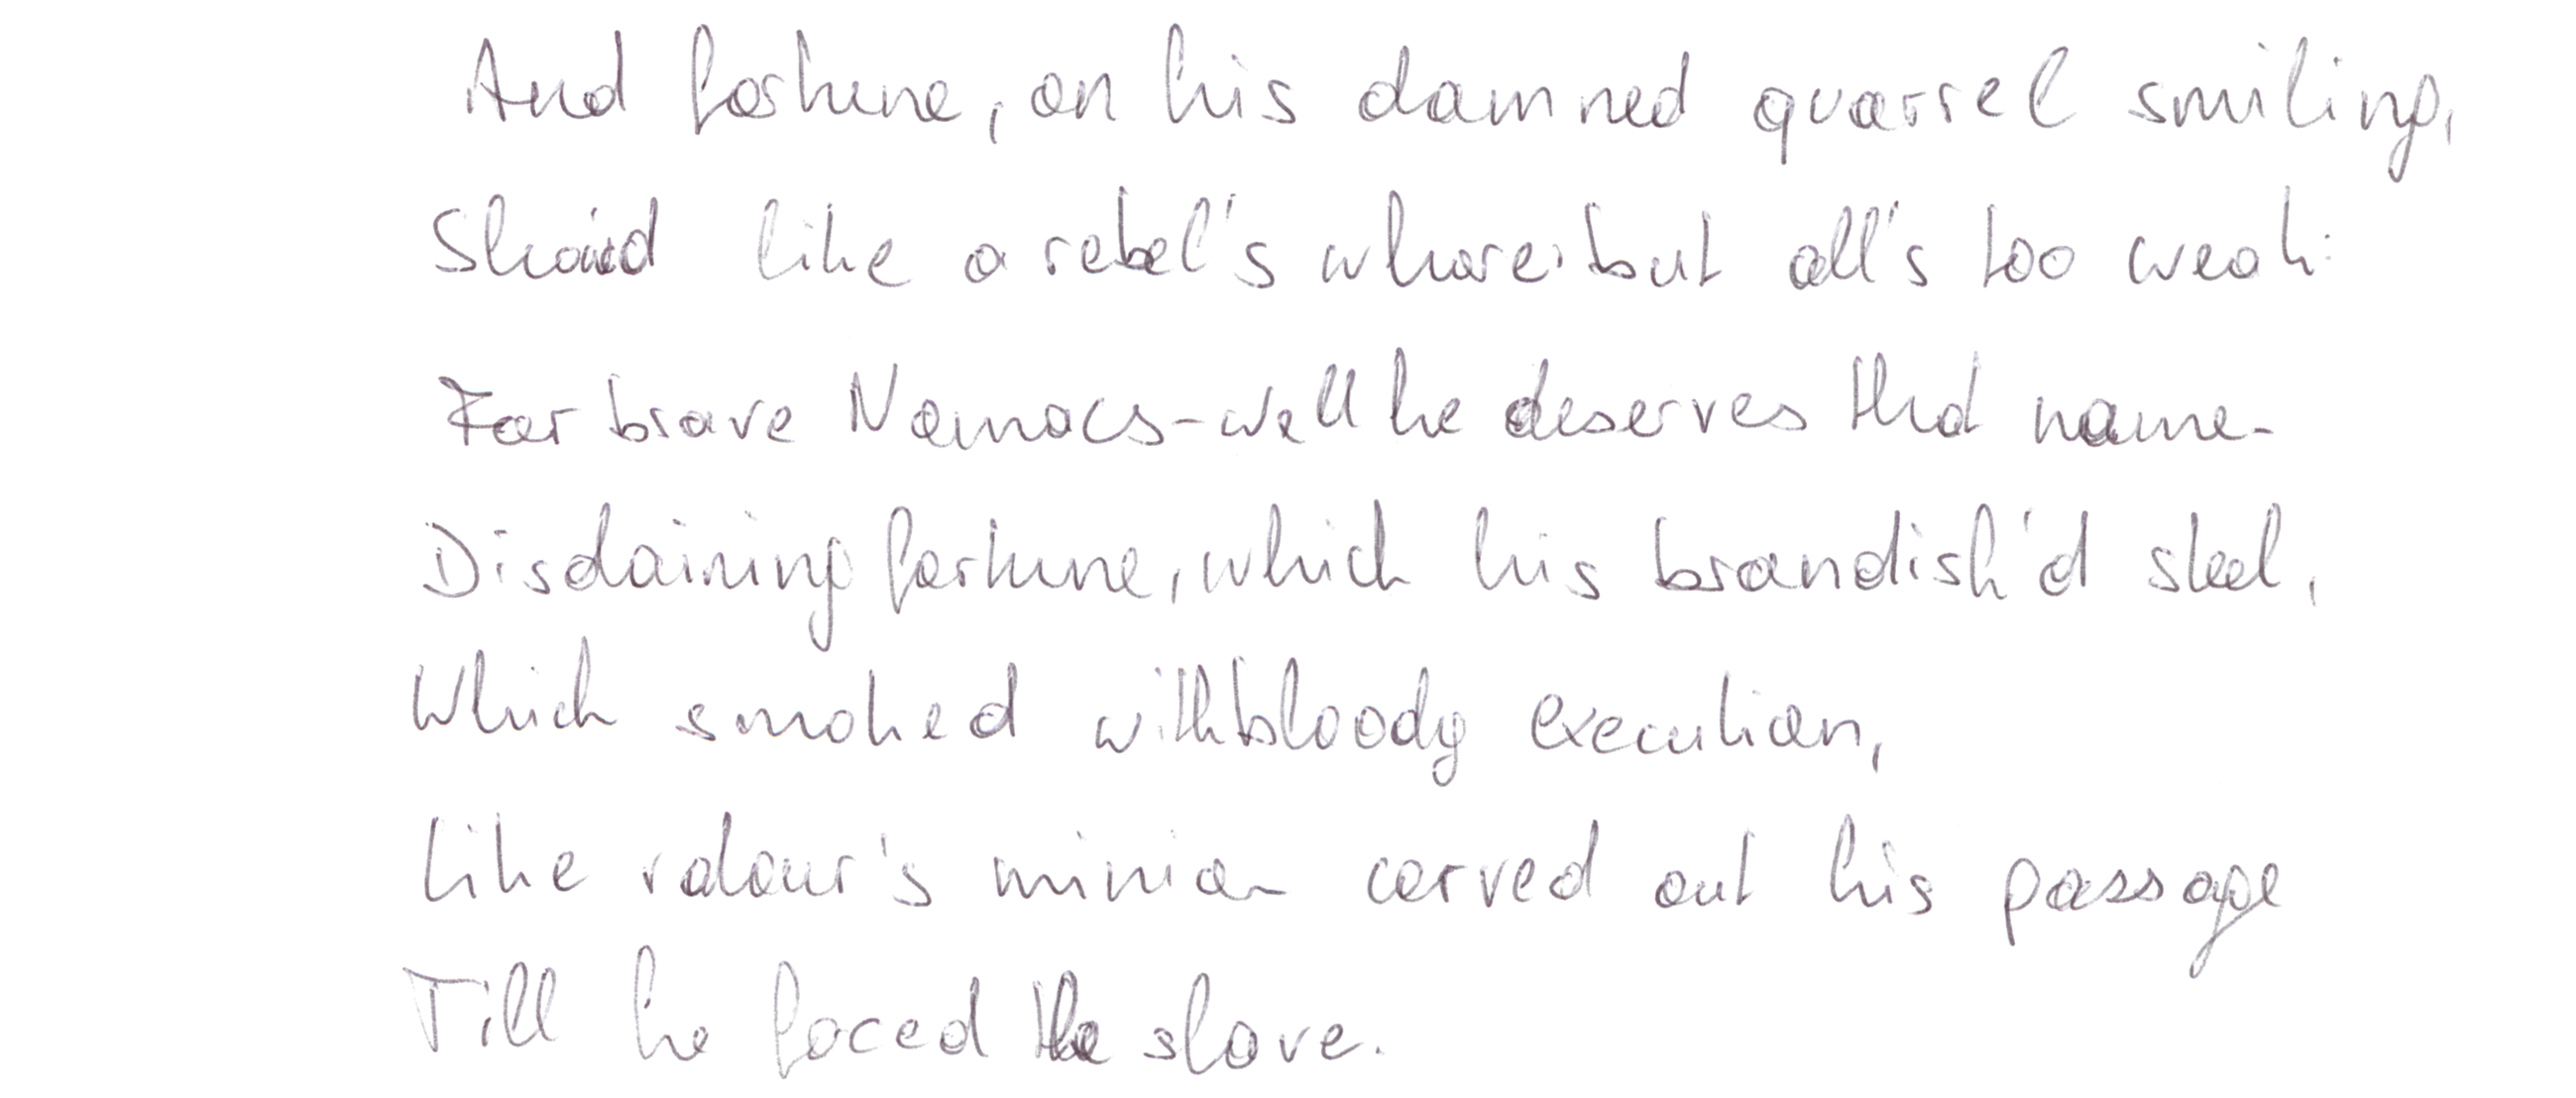 And fortune, on his damned quarrel smiling,
Show'd like a rebel's whore: but all's too weak:
For brave Nomacs-well he deserves that name-
Disdaining fortune, which his brandish'd steel,
Which smoked with bloody execution,
Like valour's minion carved out his passage
Till he faced the slave.